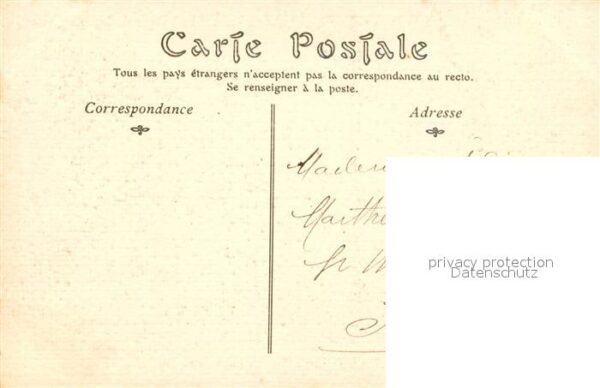 Carte Postale
Tous les pays étrangers n'acceptent pas la correspondance au recto.
Se renseigner à la poste.
Correspondance
Adresse
privacy protection
Datenschutz